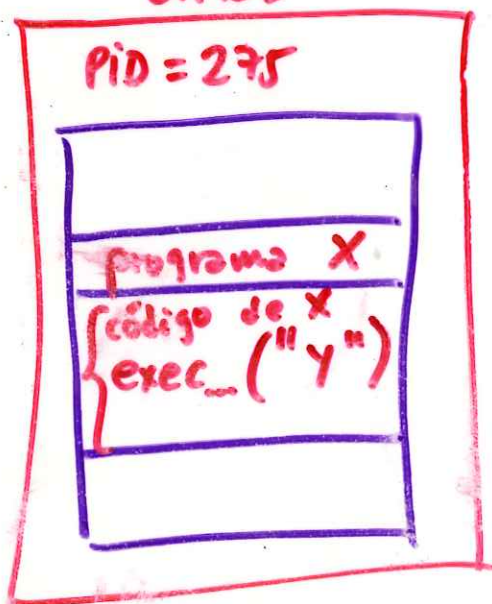 PiD = 275
programa X
código de X
exec_ ("Y")